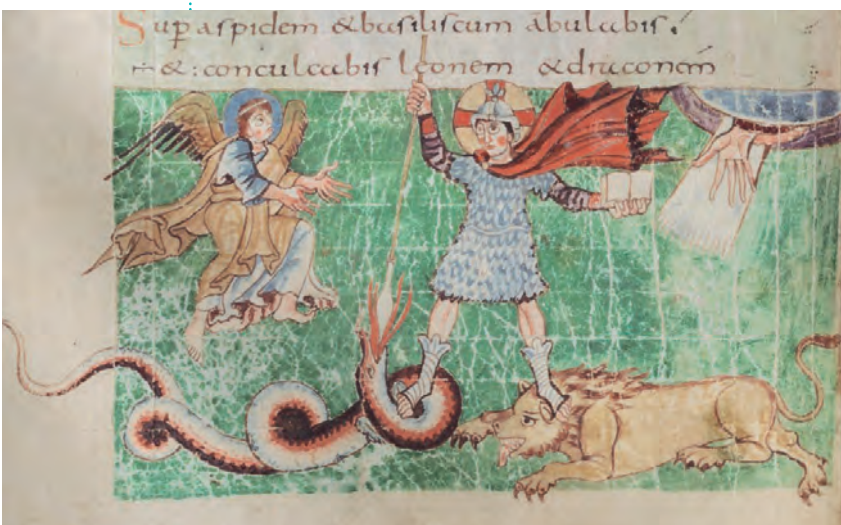 Sup aspidem & basiliscum ābulabis.
÷ & : conculcabis leonem & draconem